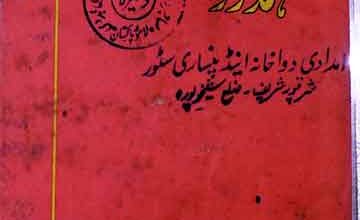 ہمدرد
امدادی دواخانہ اینڈ پنساری سٹور
شرقپور شریف۔ ضلع شیخوپورہ